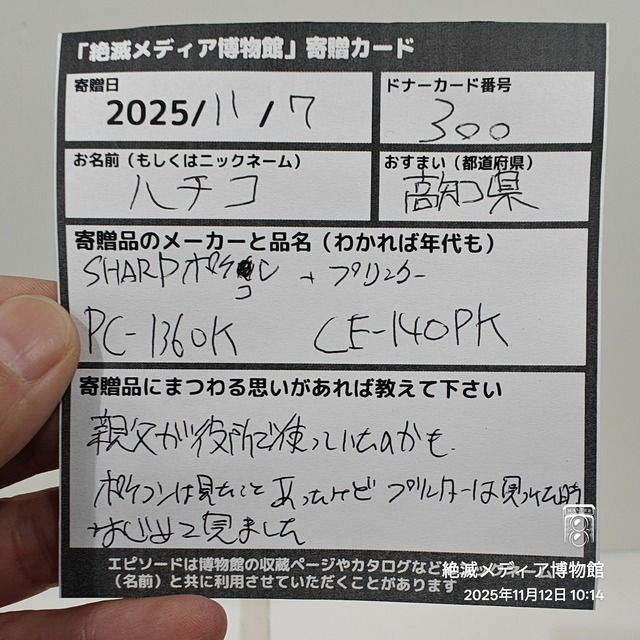 「絶滅メディア博物館」寄贈カード
寄贈日
2025/11/7
ドナーカード番号
300
お名前（もしくはニックネーム）
ハチコ
おすまい（都道府県）
高知県
寄贈品のメーカーと品名（わかれば年代も）
SHARP ポケコン + プリンター
PC-1360K CE-140PK
寄贈品にまつわる思いがあれば教えて下さい
親父が役所で使っていたのかも.
ポケコンは見たことあったけど プリンターは見つけた時
はじめて見ました
エピソードは博物館の収蔵ページやカタログなど
（名前）と共に利用させていただくことがあります
絶滅メディア博物館
2025年11月12日 10:14